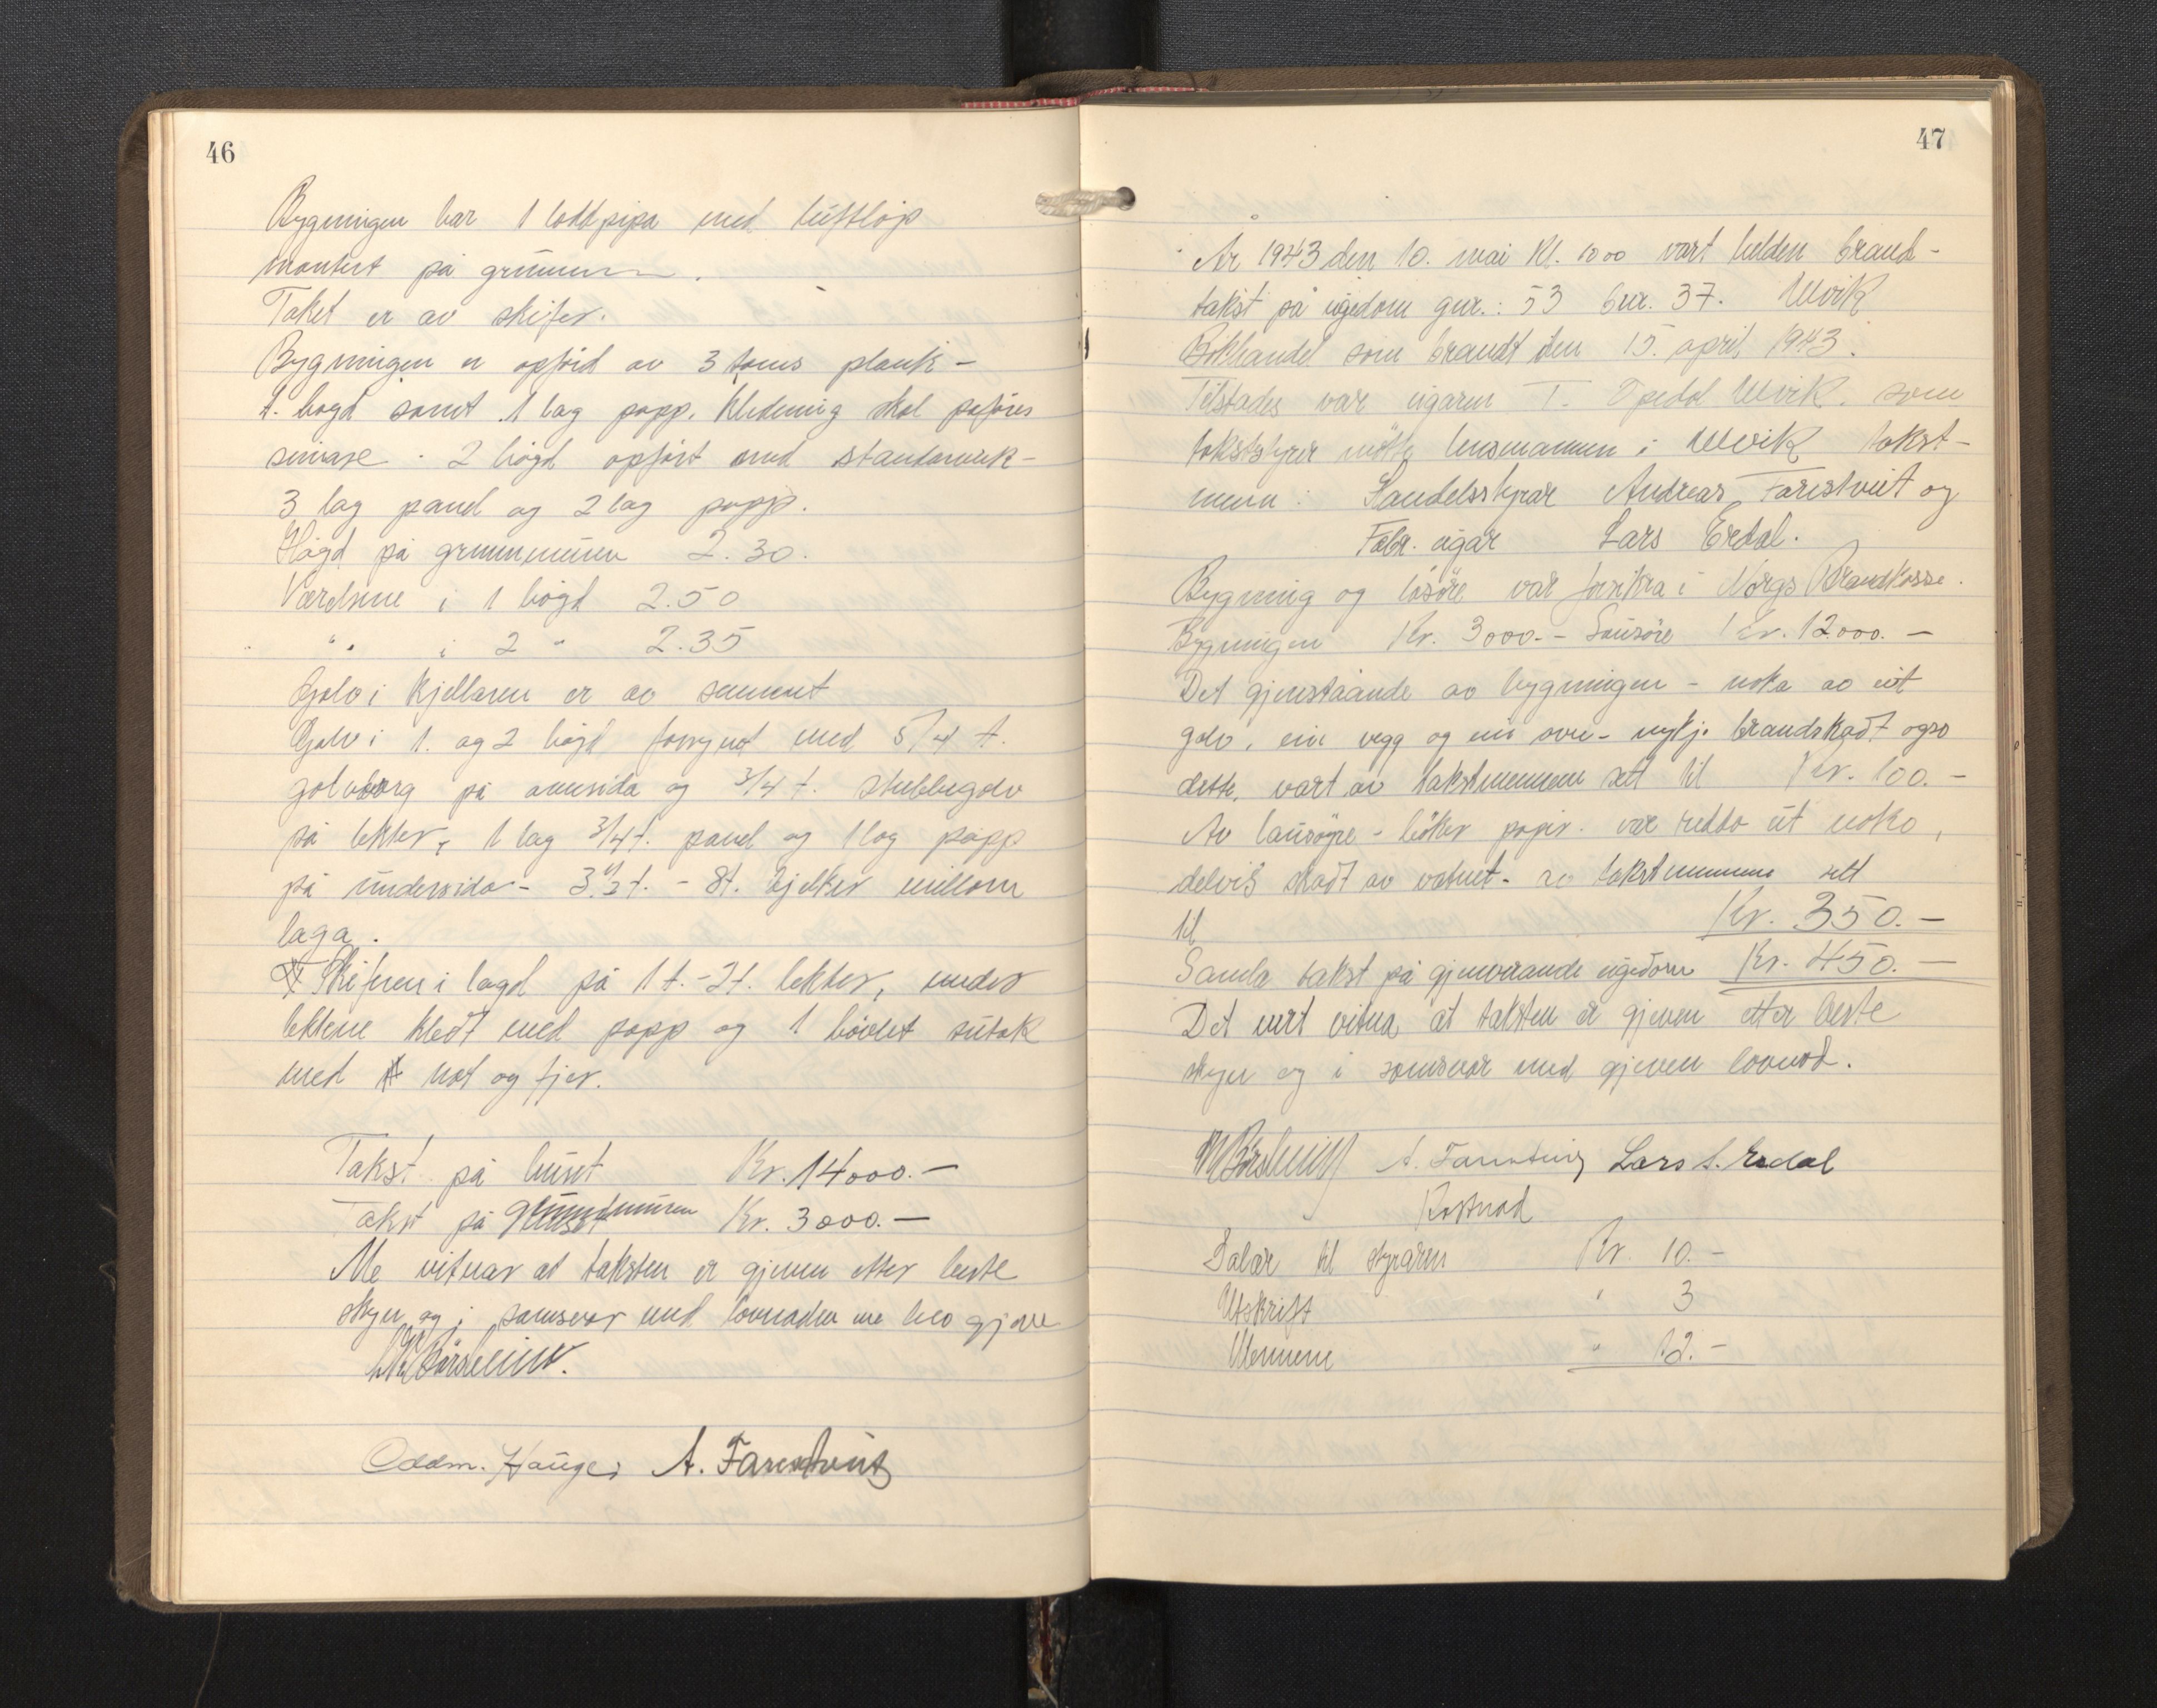 46
Bygningen har 1 lodd pipa med luftløp
montert på grunnmuren.
Taket er av skifer.
Bygningen er opførd av 3 toms plank -
1. høgd samt 1 lag papp. Kledning skal påføres
seinare. 2 høgd opført med standerverk -
3 lag panel og 2 lag papp.
Høgd på grunnmuren 2.30.
Værelsene i 1 høgd 2.50
" " i 2 " 2.35
Golv i kjellaren er av sement
Golv i 1. og 2 høgd forsynt med 5/4 t.
golvborg på oversida og 3/4 t. stubbegolv
på lekter, 1 lag 3/4 t. panel og 1 lag papp
på undersida - 3 1/2 t. - 8t. bjelker millom
laga.
Skiferen i lagd på 1 t. - 2t. lekter, under
lektene kledt med papp og 1 høvlet sutak
med not og fjer.
Takst på huset Kr. 14000.-
Takst på grunnmuren Kr. 3000.-
Me vitnar at taksten er gjeven etter beste
skyn og i samsvar med lovnaden me hev gjeve
Oddm. Hauge A. Farestveit
47
År 1943 den 10. mai Kl. 1000 vart helden brand-
takst på eigedom gnr.: 53 bnr. 37. Ulvik
Bokhandel som brandt den 15. april 1943.
Tilstades var eigaren T. Opedal Ulvik. som
takststyrer møtte lensmannen i Ulvik takst-
menn: Handelsstyrar Andreas Farestveit og
Fabr. eigar Lars Erdal.
Bygning og lösöre var forsikra i Norges Brandkasse.
Bygningen Kr. 3000.- Lausöre Kr. 12000.-
Det gjenståande av bygningen - noko av eit
golv, ein vegg og ein - brandskadt ogso
dette, vart av takstmennene sett til Kr. 100.-
Av lausöyre - böker papir. var redda ut noko,
delvis skadt av vatnet. av takstmennene sett
til Kr. 350.-
Samla takst på gjenverande eigedom Kr. 450.-
Det vert vitna at taksten er gjeven etter beste
skyn og i samsvar med gjeven lovnad.
A. Farestveit Lars L. Erdal
Kostnad
Salær til styraren Kr. 10.-
Utskrift " 3
Mennene " 12.-